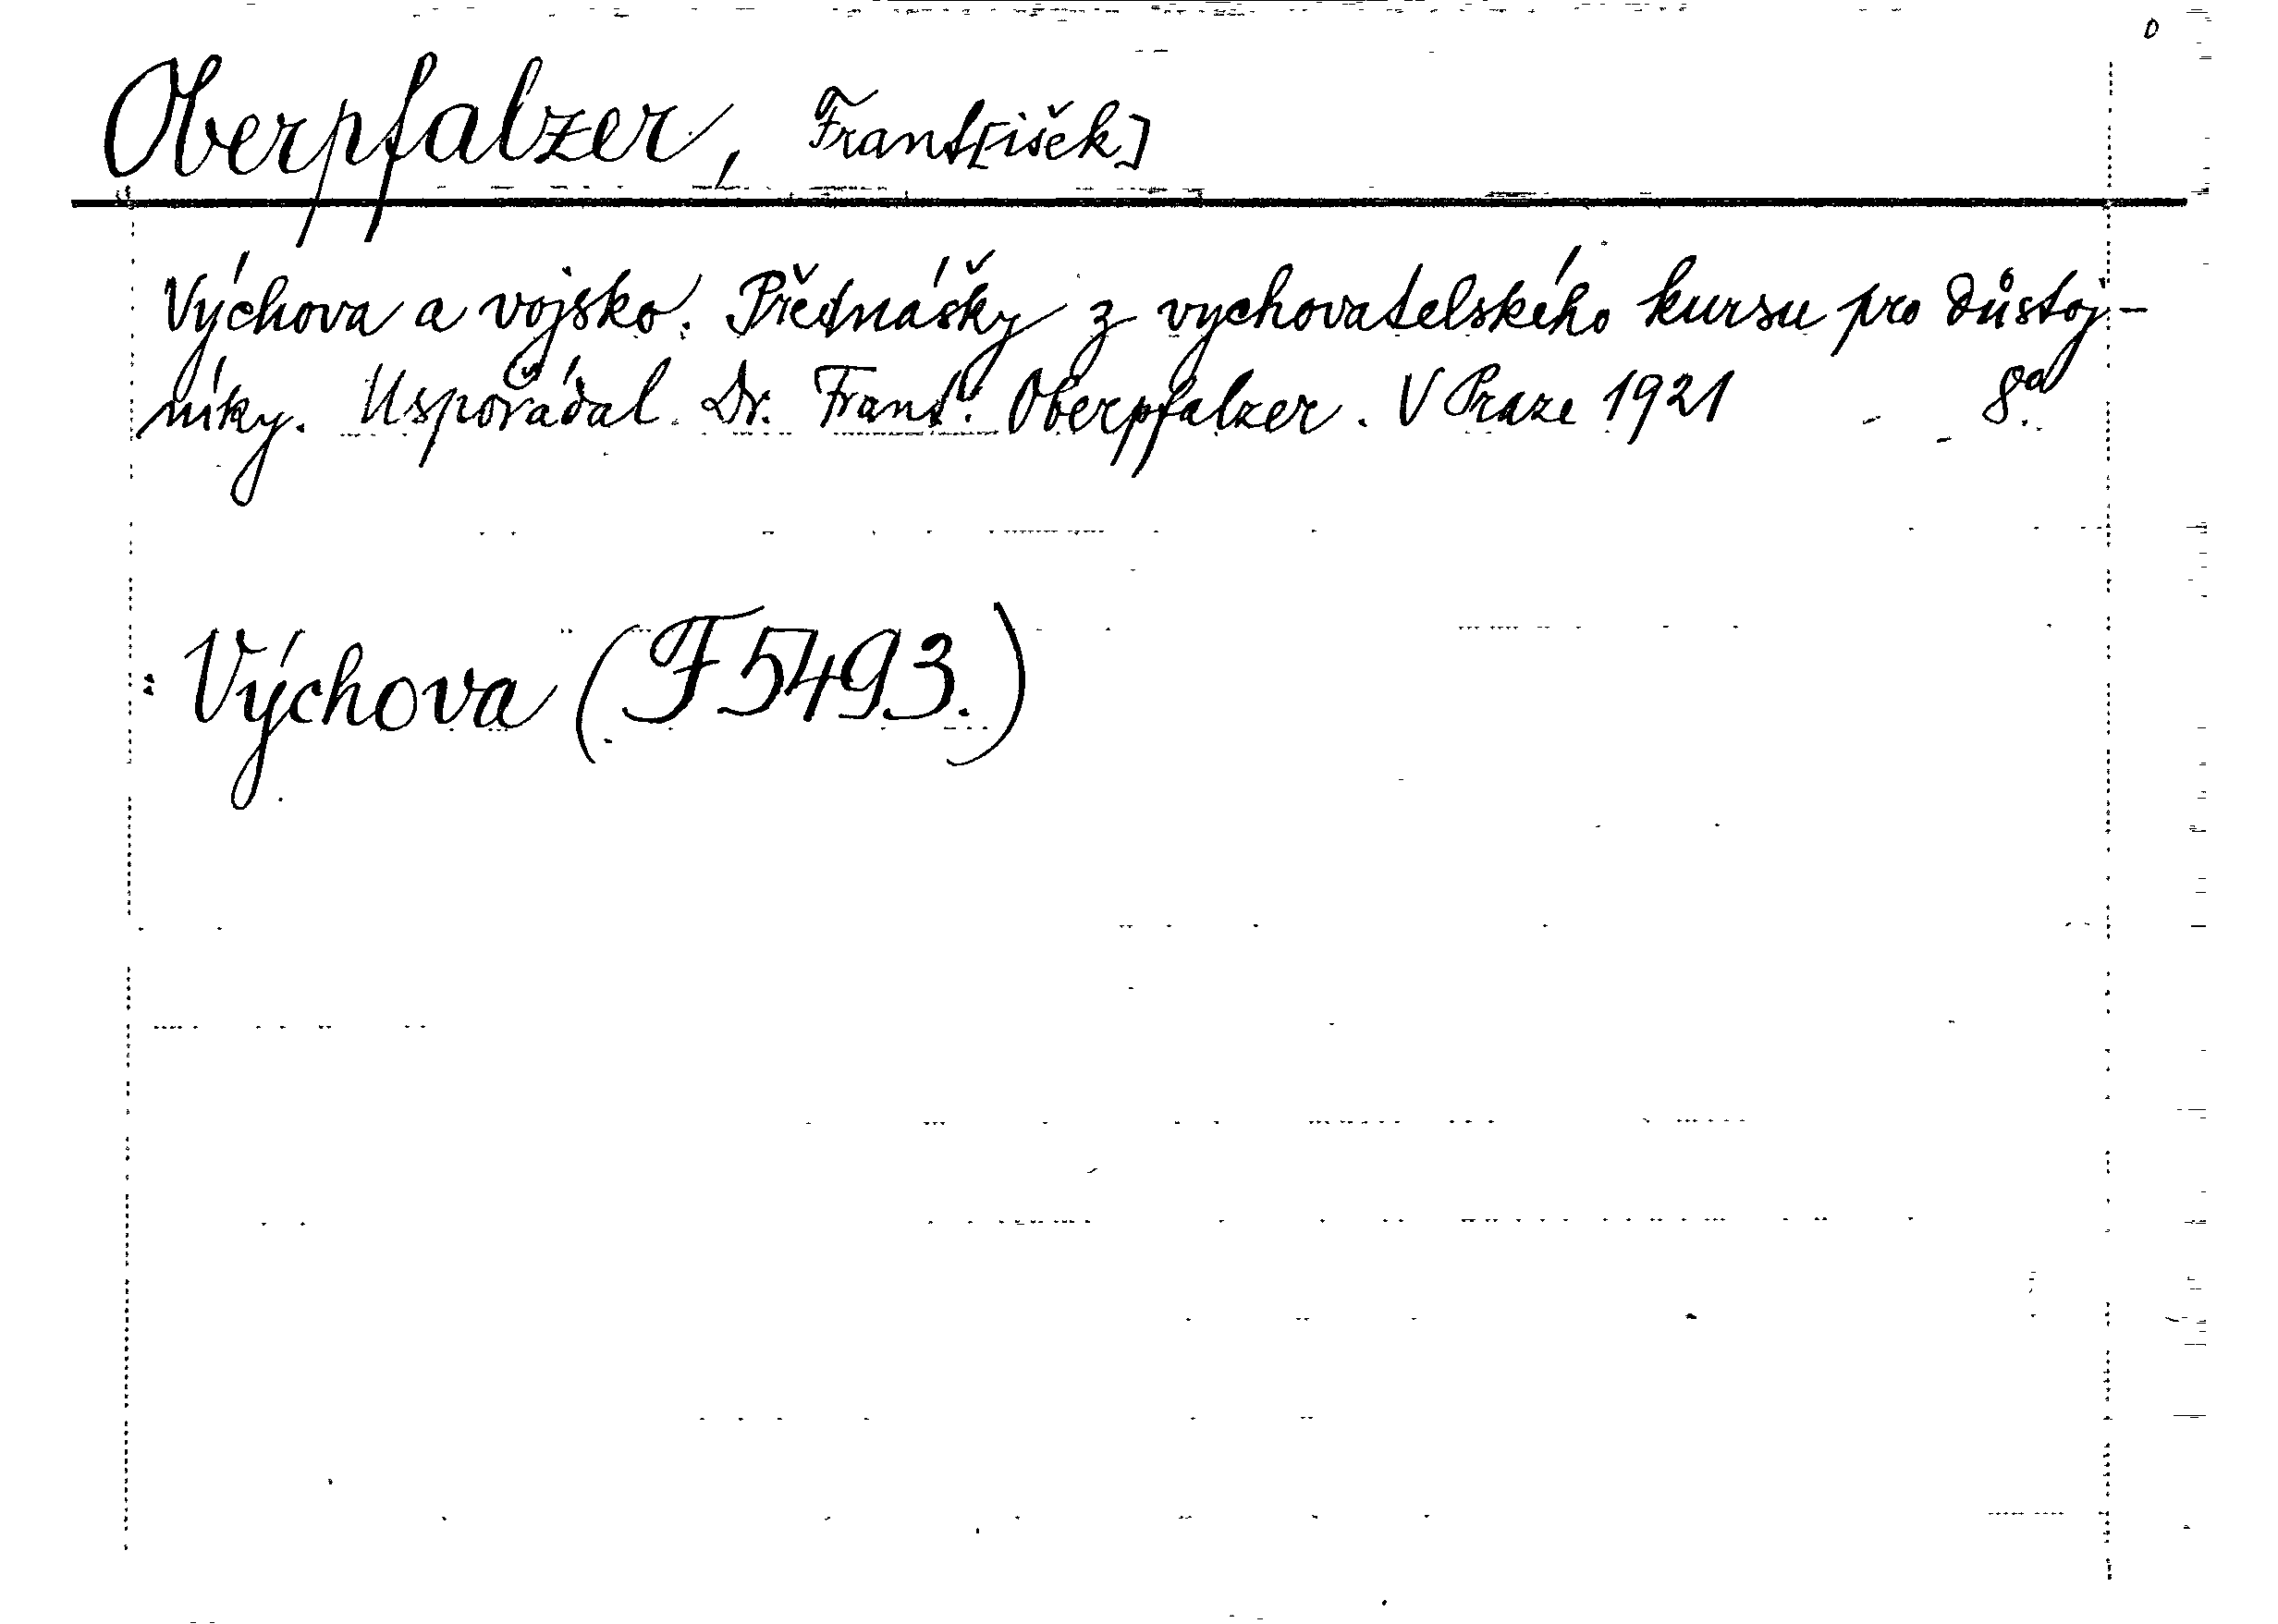 Oberpfalzer, Frant[išek]
Výchova a vojsko. Přednášky z vychovatelského kursu pro důstoj-
níky. Uspořádal Dr. Frant. Oberpfalzer. V Praze 1921 8.°
: Výchova (F 5493.)